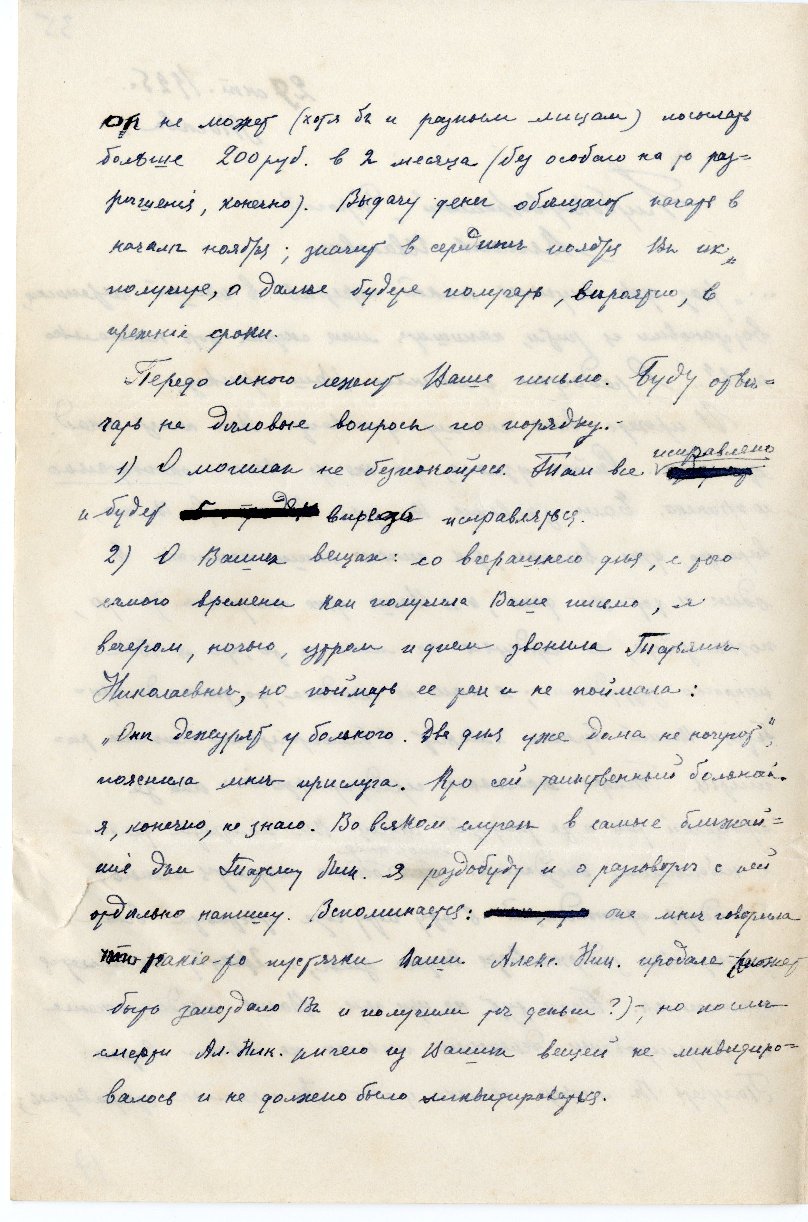 он не может (хотя бы и разным лицам) посылать
больше 200 руб. в 2 месяца (без особого на то раз=
рѣшенія, конечно). Выдачу денег обѣщают начать в
началѣ ноября; значит в серединѣ ноября Вы их
получите, а далее будете получать, вѣроятно, в
прежніе сроки.
Передо мною лежит Ваше письмо. Буду отвѣ=
чать на дѣловые вопросы по порядку.
1) О могилах не безпокойтесь. Там все исправлено
и будет впредь исправляться.
2) О Ваших вещах: со вчерашнего дня, с того
самого времени как получила Ваше письмо, я
вечером, ночью, утром и днем звонила Татьянѣ
Николаевнѣ, но поймать ее так и не поймала:
„Онѣ дежурят у больного. Два дня уже дома не ночуют",
пояснила мнѣ прислуга. Кто сей таинственный больной
я, конечно, не знаю. Во всяком случаѣ в самые ближай=
шіе дни Татьяну Ник. я раздобуду и о разговорѣ с ней
отдѣльно напишу. Вспоминается: она мнѣ говорила
что какіе-то пустячки Ваши Алекс. Ник. продала (может
быть запоздало Вы и получили те деньги?) -, но послѣ
смерти Ал. Ник. ничего из Ваших вещей не ликвидиро=
валось и не должно было ликвидироваться.